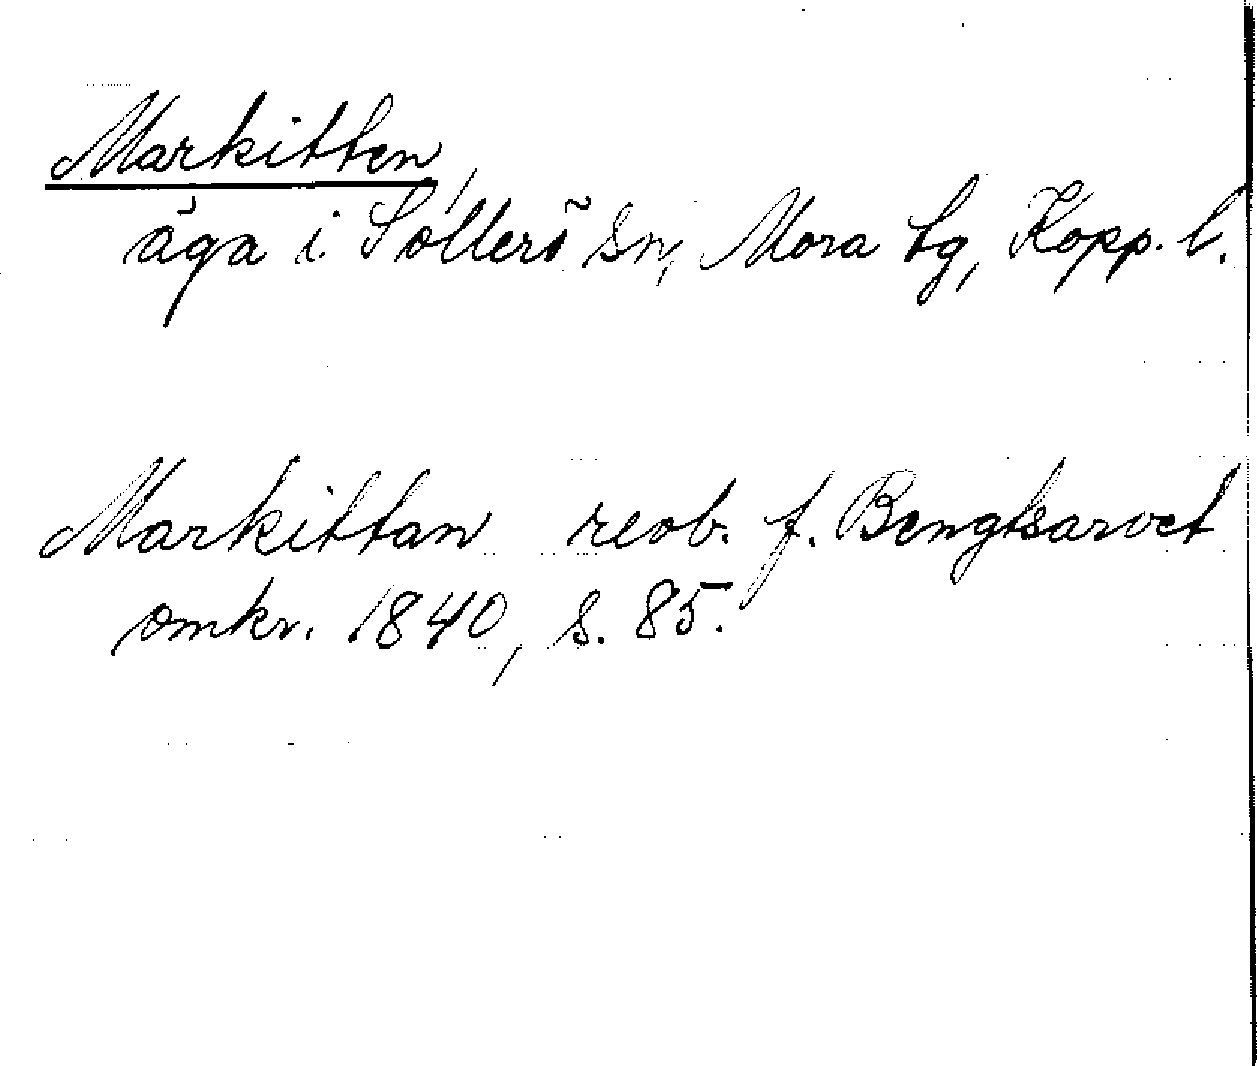 Markitten,
äga i Sollerö sn, Mora tg, Kopp. l.
Markittan reob. f. Bengtsarvet
omkr. 1840, s. 85.